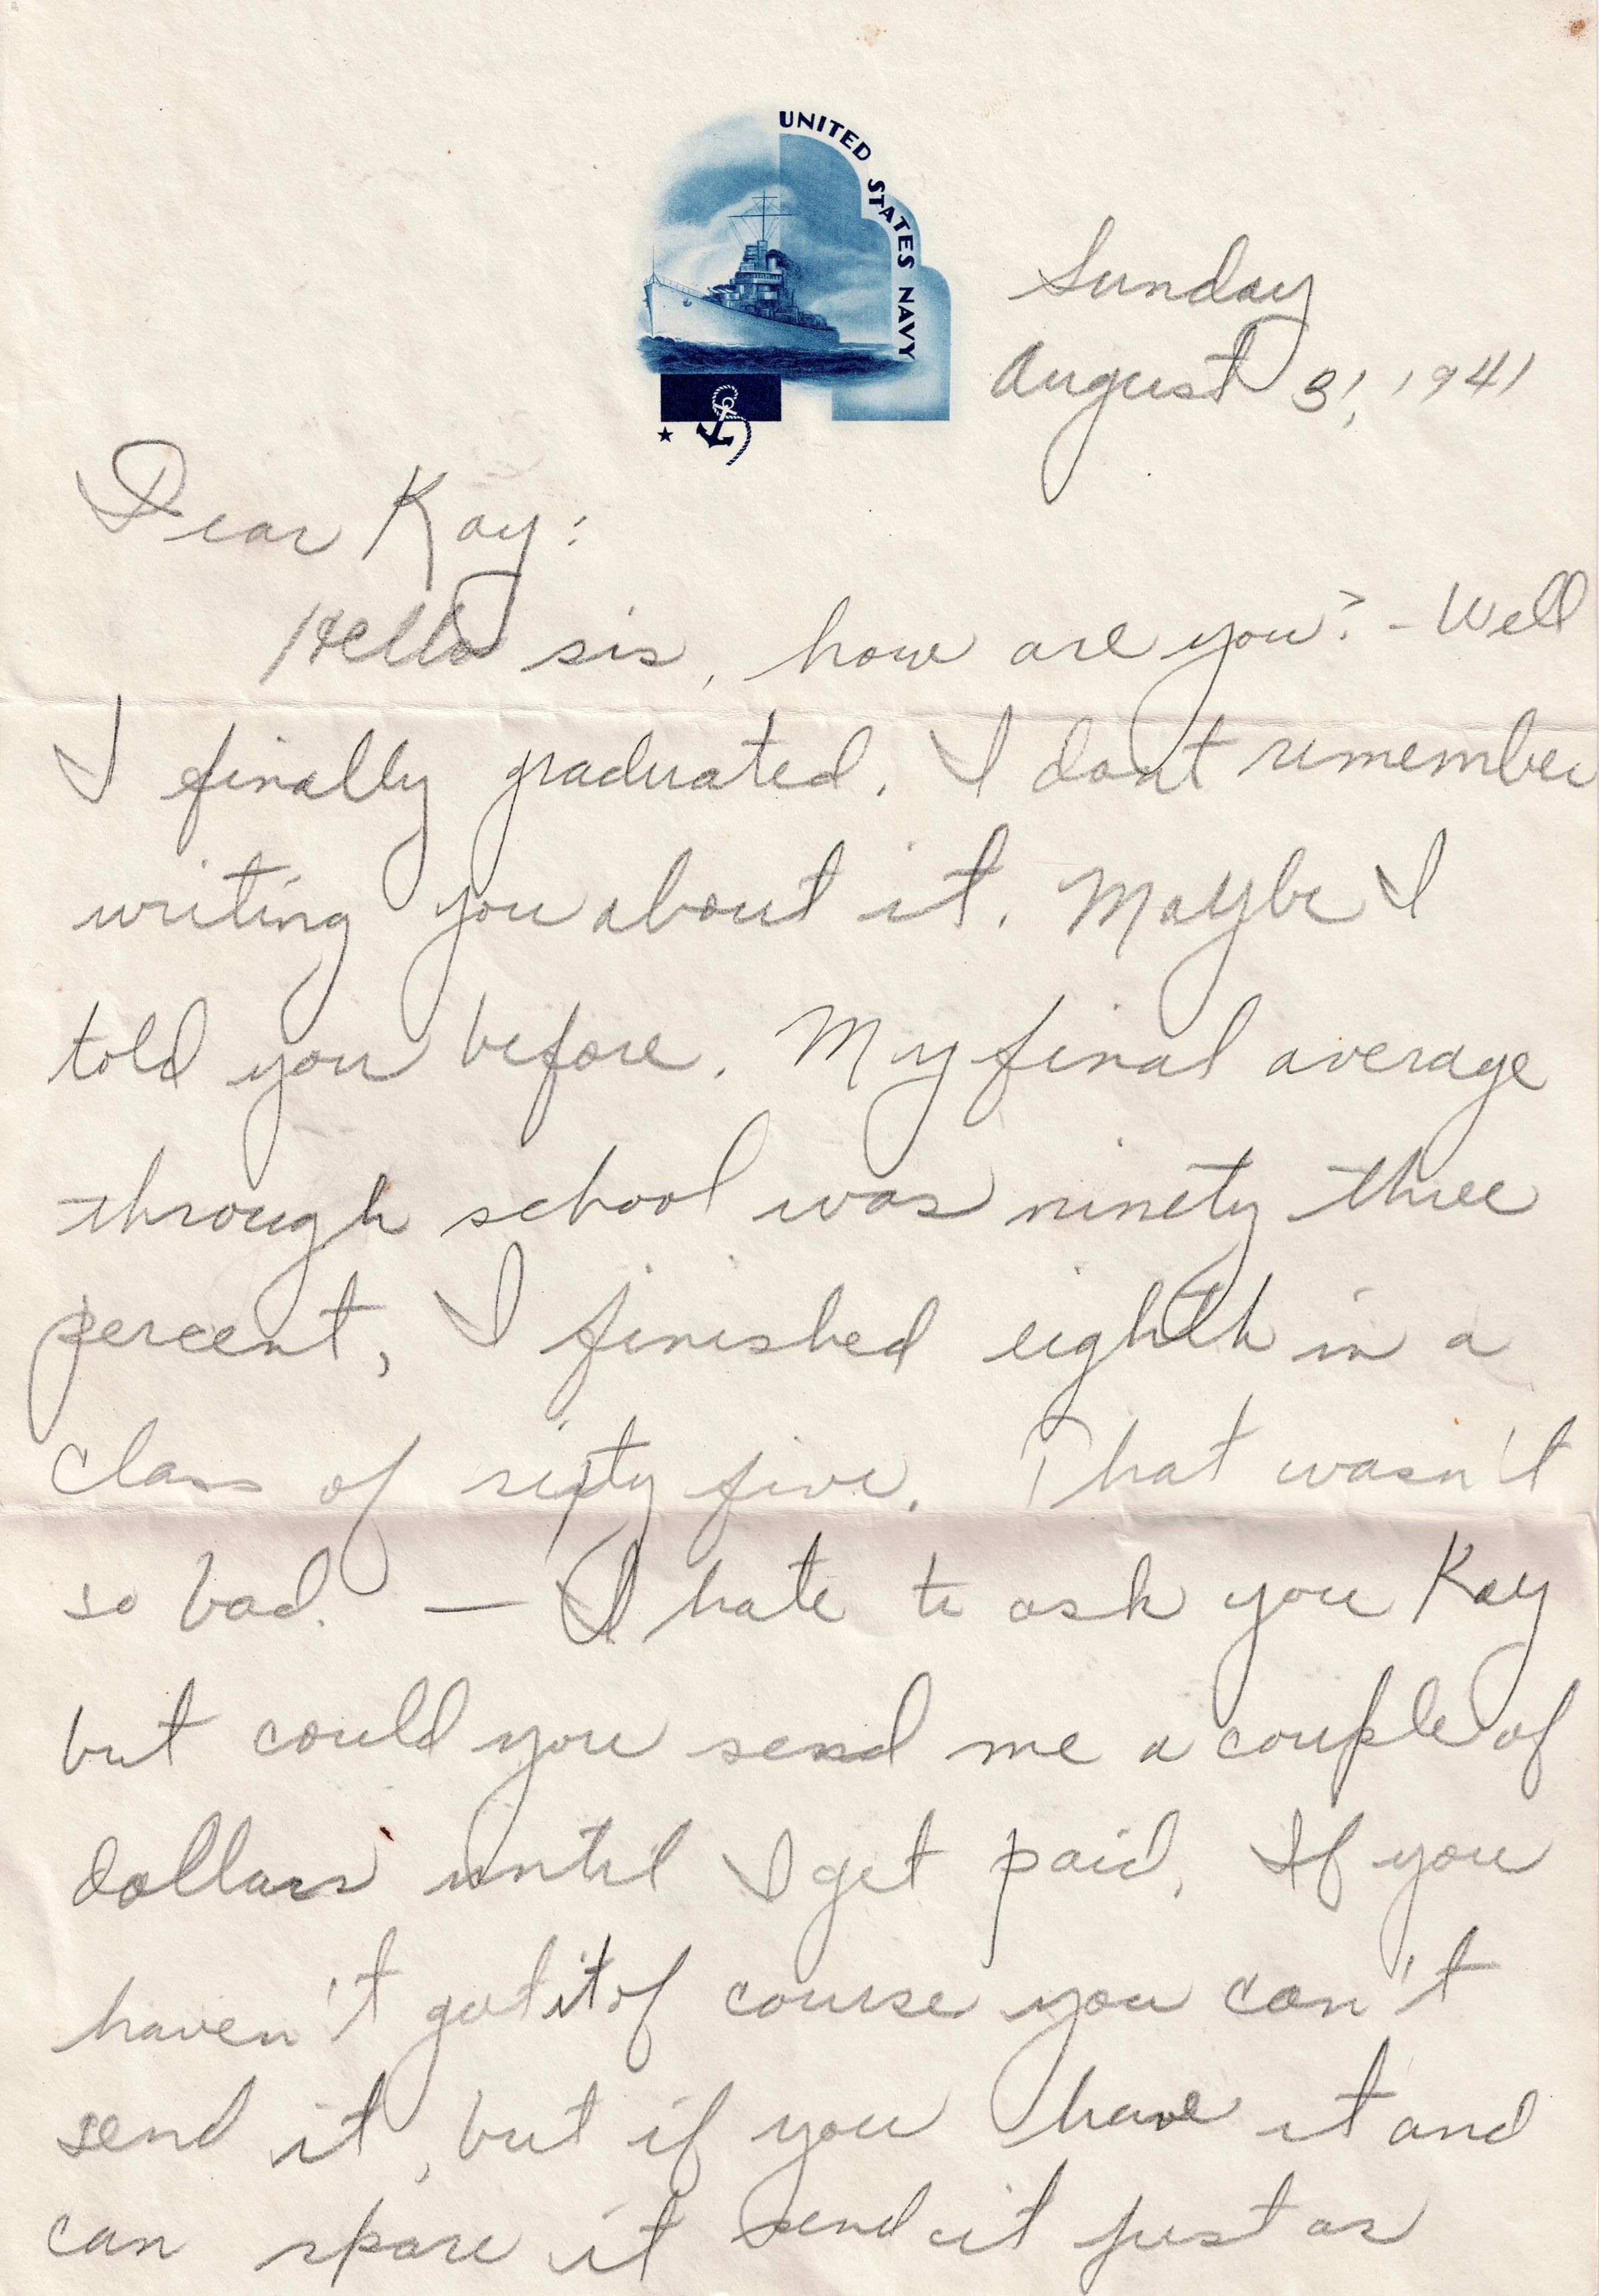 UNITED STATES NAVY
Sunday
August 31, 1941
Dear Kay:
Hello sis, how are you? - Well
I finally graduated. I dont remember
writing you about it. Maybe I
told you before. My final average
through school was ninety three
percent, I finished eighth in a
class of sixty five. That wasn't
so bad. — I hate to ask you Kay
but could you send me a couple of
dollars until I get paid. If you
haven't got it of course you can't
send it, but if you have it and
can spare it send it just as